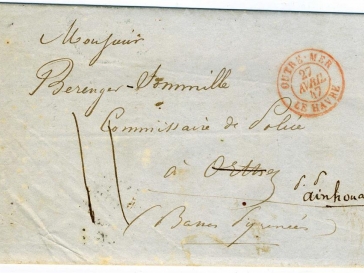 Monsieur
Berenger-Dommille
Commissaire de Police
à Orthez
ainhoa
Basses Pyrenées
OUTRE-MER
27
AVRIL
47
LE HAVRE